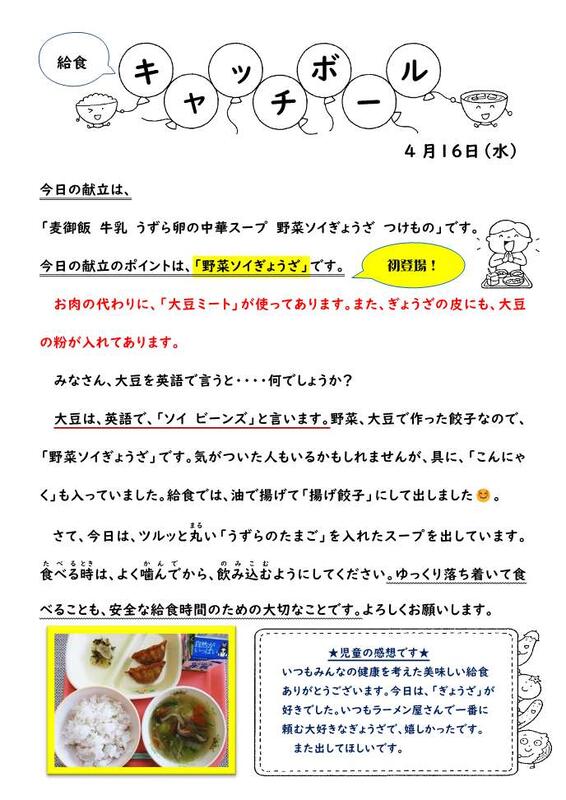 給食
キャッチボール
4月16日（水）
今日の献立は、
「麦御飯 牛乳 うずら卵の中華スープ 野菜ソイぎょうざ つけもの」です。
今日の献立のポイントは、「野菜ソイぎょうざ」です。
初登場！
お肉の代わりに、「大豆ミート」が使ってあります。また、ぎょうざの皮にも、大豆
の粉が入れてあります。
みなさん、大豆を英語で言うと・・・・何でしょうか？
大豆は、英語で、「ソイ ビーンズ」と言います。野菜、大豆で作った餃子なので、
「野菜ソイぎょうざ」です。気がついた人もいるかもしれませんが、具に、「こんにゃ
く」も入っていました。給食では、油で揚げて「揚げ餃子」にして出しました😊。
さて、今日は、ツルッと丸い「うずらのたまご」を入れたスープを出しています。
まる
食べる時は、よく噛んでから、飲み込むようにしてください。ゆっくり落ち着いて食
たべるとき かんで のみこむ
べることも、安全な給食時間のための大切なことです。よろしくお願いします。
★児童の感想です★
いつもみんなの健康を考えた美味しい給食
ありがとうございます。今日は、「ぎょうざ」が
好きでした。いつもラーメン屋さんで一番に
頼む大好きなぎょうざで、嬉しかったです。
また出してほしいです。